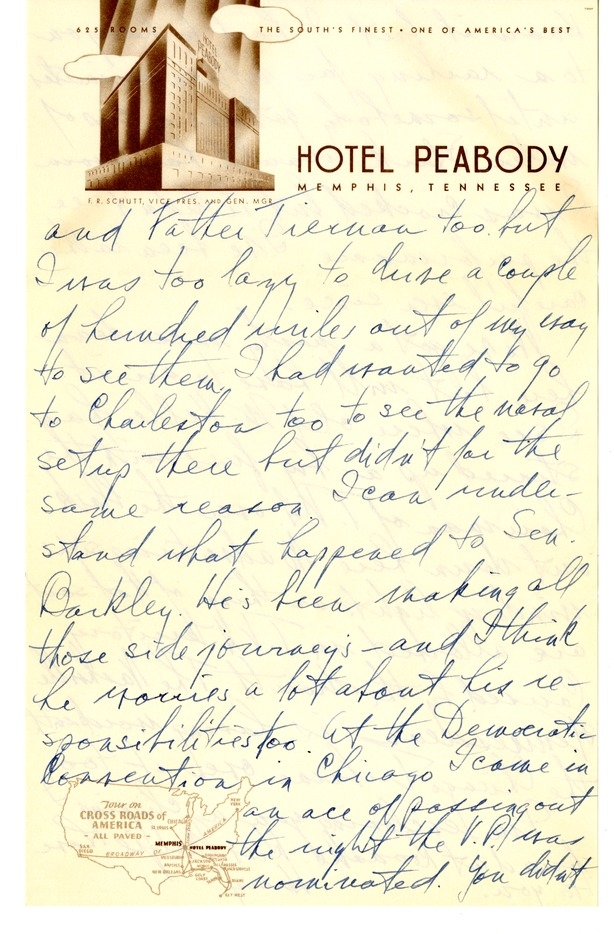 625 ROOMS THE SOUTH'S FINEST • ONE OF AMERICA'S BEST
HOTEL PEABODY
HOTEL PEABODY
MEMPHIS, TENNESSEE
F. R. SCHUTT, VICE PRES. AND GEN. MGR
and Father Tiernan too but
I was too lazy to drive a couple
of hundred miles out of my way
to see them. I had wanted to go
to Charleston too to see the naval
setup there but didn't for the
same reason. I can under-
stand what happened to Sen.
Barkley. He's been making all
those side journeys - and I think
he worries a lot about his re-
sponsibilities too. At the Democratic
Convention in Chicago I came in
an ace of passing out
the night the V.P. was
nominated. You didn't
Tour on
CROSS ROADS of
AMERICA
- ALL PAVED -
NEW YORK
CHICAGO
ST. LOUIS
MEMPHIS HOTEL PEABODY
SAN DIEGO
BROADWAY OF AMERICA
NEW ORLEANS
MIAMI
KEY WEST